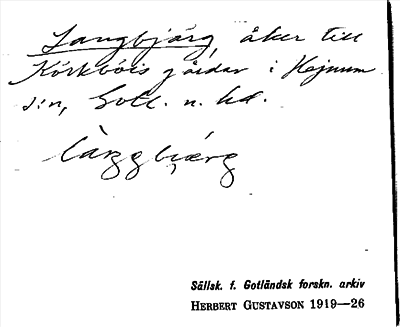 Langbjärg, åker till
Körkbóis gårdar i Hejnum
s:n, Gotl. n. hd.
làŋgbjærg
Sällsk. f. Gotländsk forskn. arkiv
HERBERT GUSTAVSON 1919—26